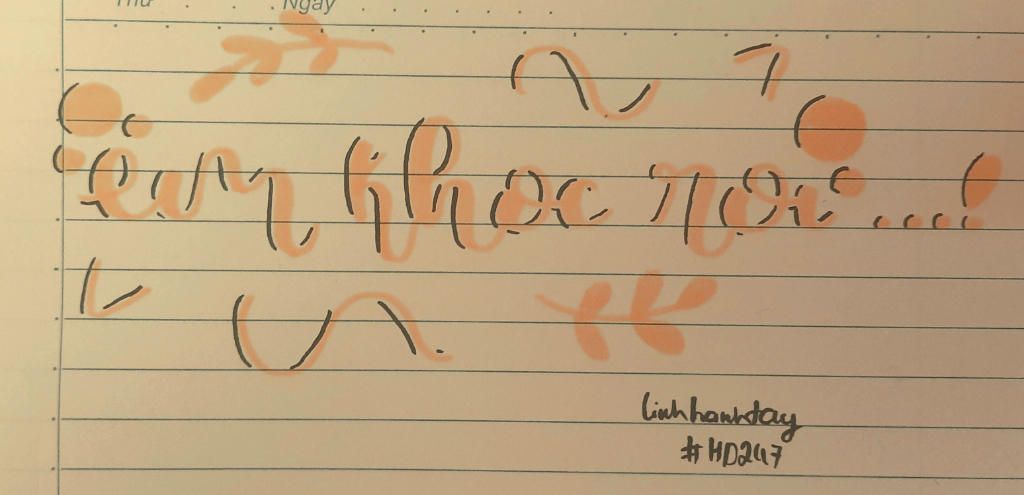 Thứ Ngày
em khoc roi ...!
linhhanhday
#HD247